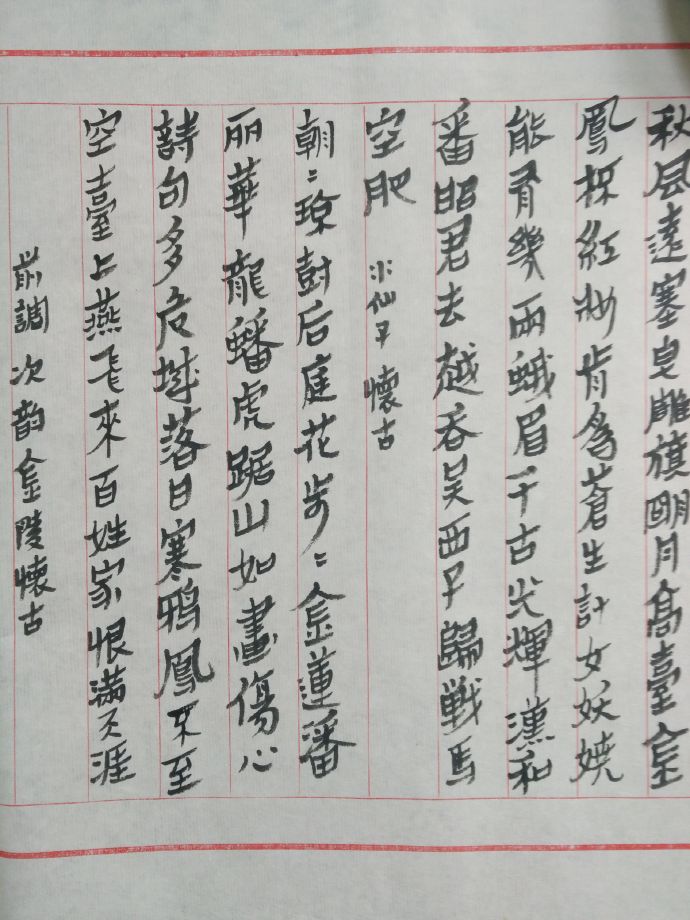 秋风遠塞皂雕旗明月高臺金
鳳杯紅妝肯爲蒼生計女妖嬈
能有幾兩蛾眉千古光輝漢和
番昭君去越吞吴西子歸戦馬
空肥 水仙子懷古
朝〻瓊樹后庭花步〻金蓮潘
丽華龍蟠虎踞山如畫傷心
詩句多危城落日寒鴉鳳不至
空臺上燕飞來百姓家恨满天涯
前調次韵金陵懷古